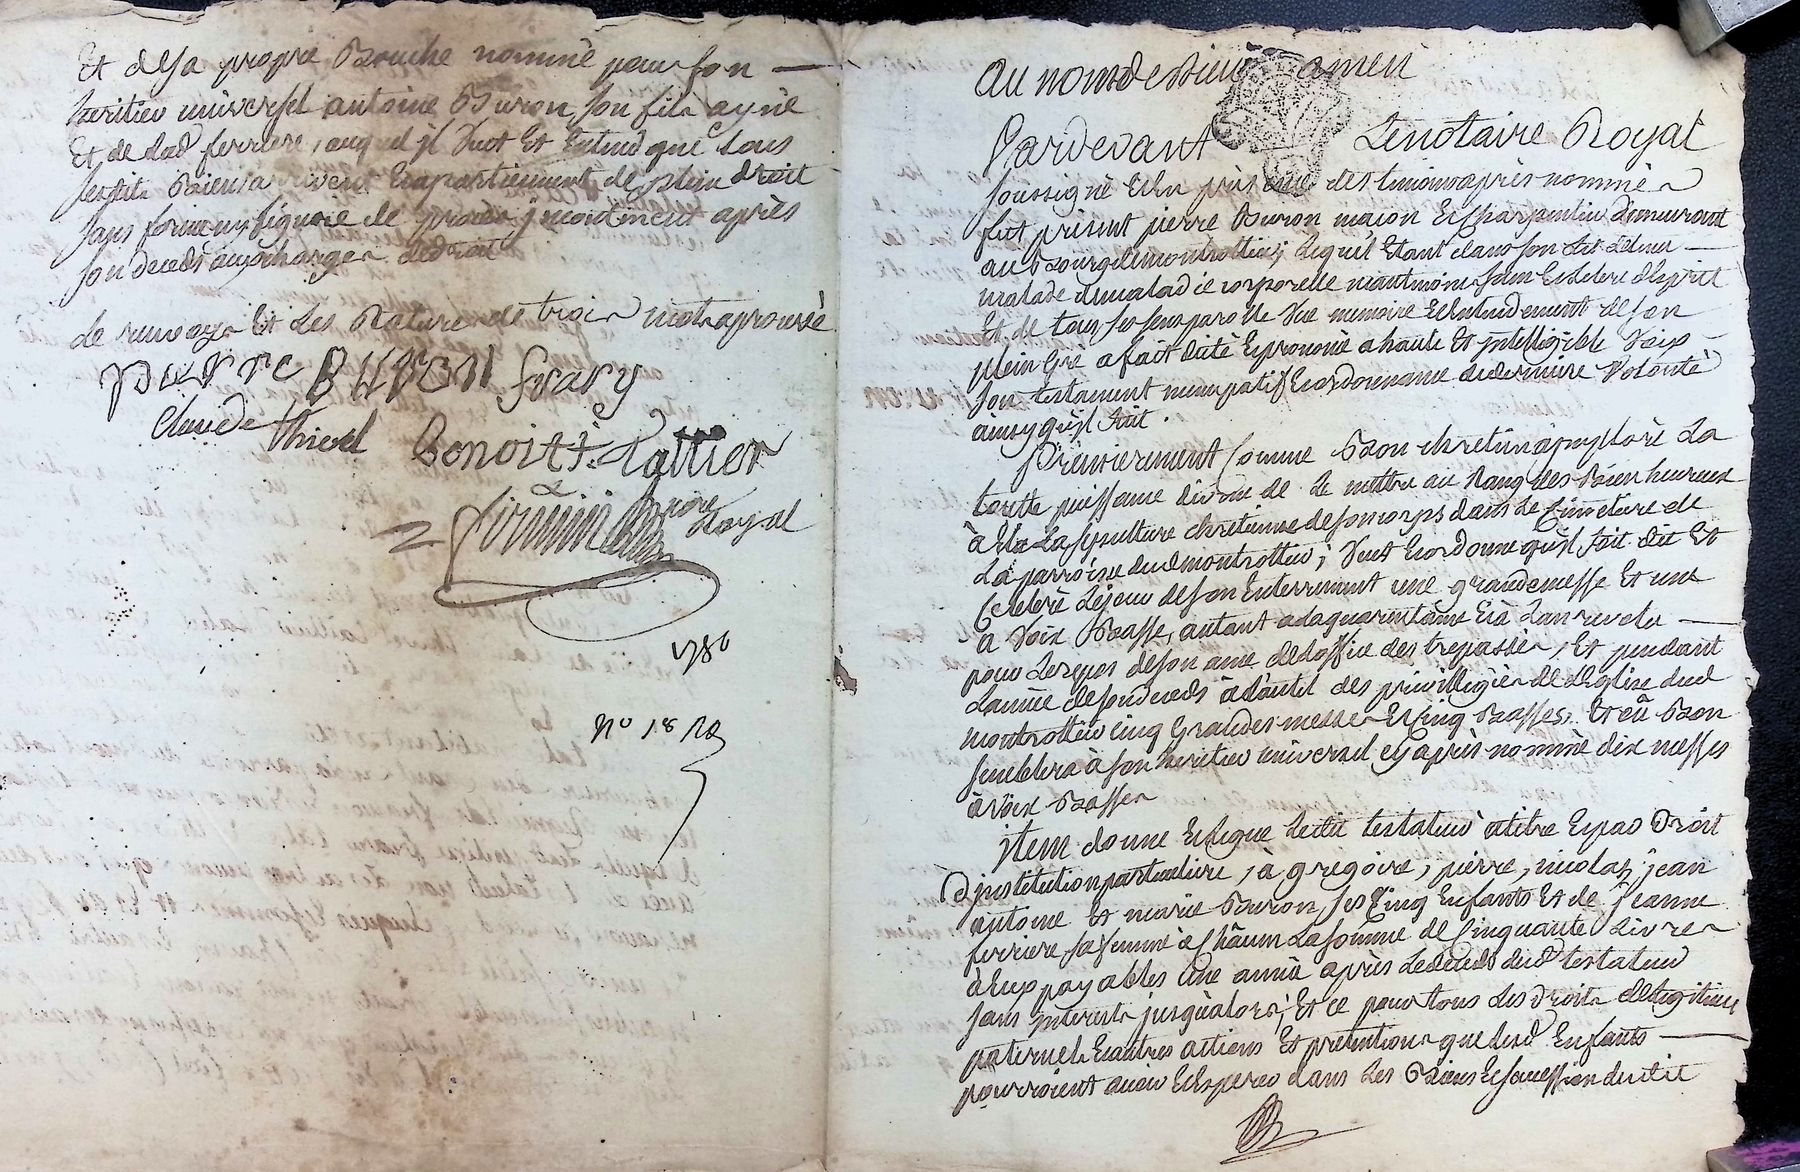 Et desa propre Bouche nommé pour son
heritier universel antoine Buron son fils ayné
Et de lad ferriere, auquel il Veut Et Entend que tous
sesdits Biens arrivent Et apartiennent de plein droit
sans forme ny figure de procès, jncontinent après
son deceds aux charges de droit
le renvoy Et les Rature de trois mots aprouvé
pierre BURON Frary
Claude Thivel Benoit Lattier
Royal
1786
No 18
au nom de Dieu amen
Pardevant Lenotaire Royal
soussigné Et En présence des temoins après nommés
fut présent pierre Buron maçon Et Charpentier demeurant
au Bourg de montrottier, lequel Etant dans son lit detenu
malade de maladie corporelle neantmoins sain Et libre d'esprit
Et de tous ses sens parole Vue memoire Et Entendement de son
plein Gré a fait dicté Et prononcé a haute Et jntelligible Voix
son testament noncupatif Et ordonnance de derniere Volonté
ainsy qu'il suit.
Premierement Comme Bon chretien a jmploré La
toutte puissance divine de le mettre au Rang des Bien heureux
à Elu La sepulture chretienne de son corps dans le Cimetiere de
La parroisse dud montrottier; Veut Et ordonne qu'il soit dit Et
Celebré Lejour de son Enterrement une grande messe Et une
a Voix Basse, autant a la quarentaine Et à L'an revolu
pour Le repos de son ame de L'office des trepassés, Et pendant
L'année de son deceds à L'autel des privilegiés de L'Eglise dud
montrottier cinq Grandes messes Et Cinq Basses, Et où Bon
semblera à son heritier universel cy après nommé dix messes
à Voix Basses
jtem donne Et legue ledit testateur a titre Et par Droit
D'jnstitution particuliere, à gregoire, pierre, nicolas, jean
antoine Et marie Buron, ses Cinq Enfants Et de jeanne
ferriere sa femme à Châcun La somme de Cinquante Livres
à Eux payables Une année après Le deceds dud testateur
sans jnterests jusqu'alors, Et ce pour tous Les droits de Legitime
paternels Et autres actions Et pretentions que lesd Enfants
pourroient avoir Et Esperer dans Les Biens Et succession dudit